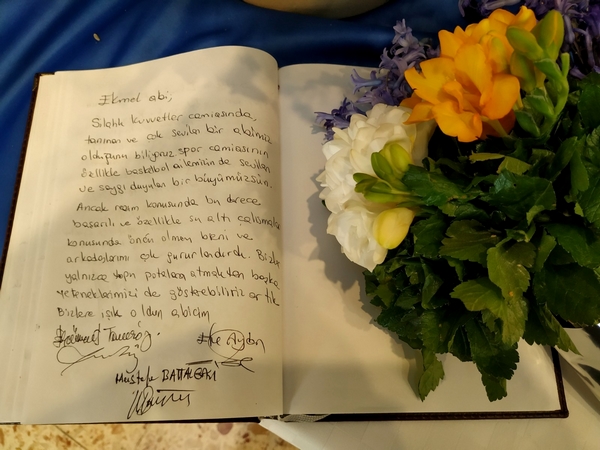 Ekmel abi,
Silahlı kuvvetler camiasında,
tanınan ve çok sevilen bir abimiz
olduğunu biliyoruz spor camiasının
özellikle basketbol ailemizin de sevilen
ve saygı duyulan bir büyüğümüzsün.
Ancak resim konusunda bu derece
başarılı ve özellikle su altı çalışmaları
konusunda öncü olman beni ve
arkadaşlarımı çok gururlandırdı. Bizler
yalnızca topu potalara atmaktan başka
yeteneklerimizi de gösterebiliriz artık
Bizlere ışık oldun abicim
Mustafa BATTALGAZİ